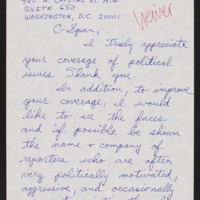 400 N. CAPITAL ST. N.W
SUITE 650
WASHINGTON, D.C. 20001
C-Span,
I truly appreciate
your coverage of political
issues. Thank you.
In addition, to improve
your coverage, I would
like to see the faces
and if possible be shown
the name & company of
reporters who are often
very politically motivated,
aggressive, and occasionally